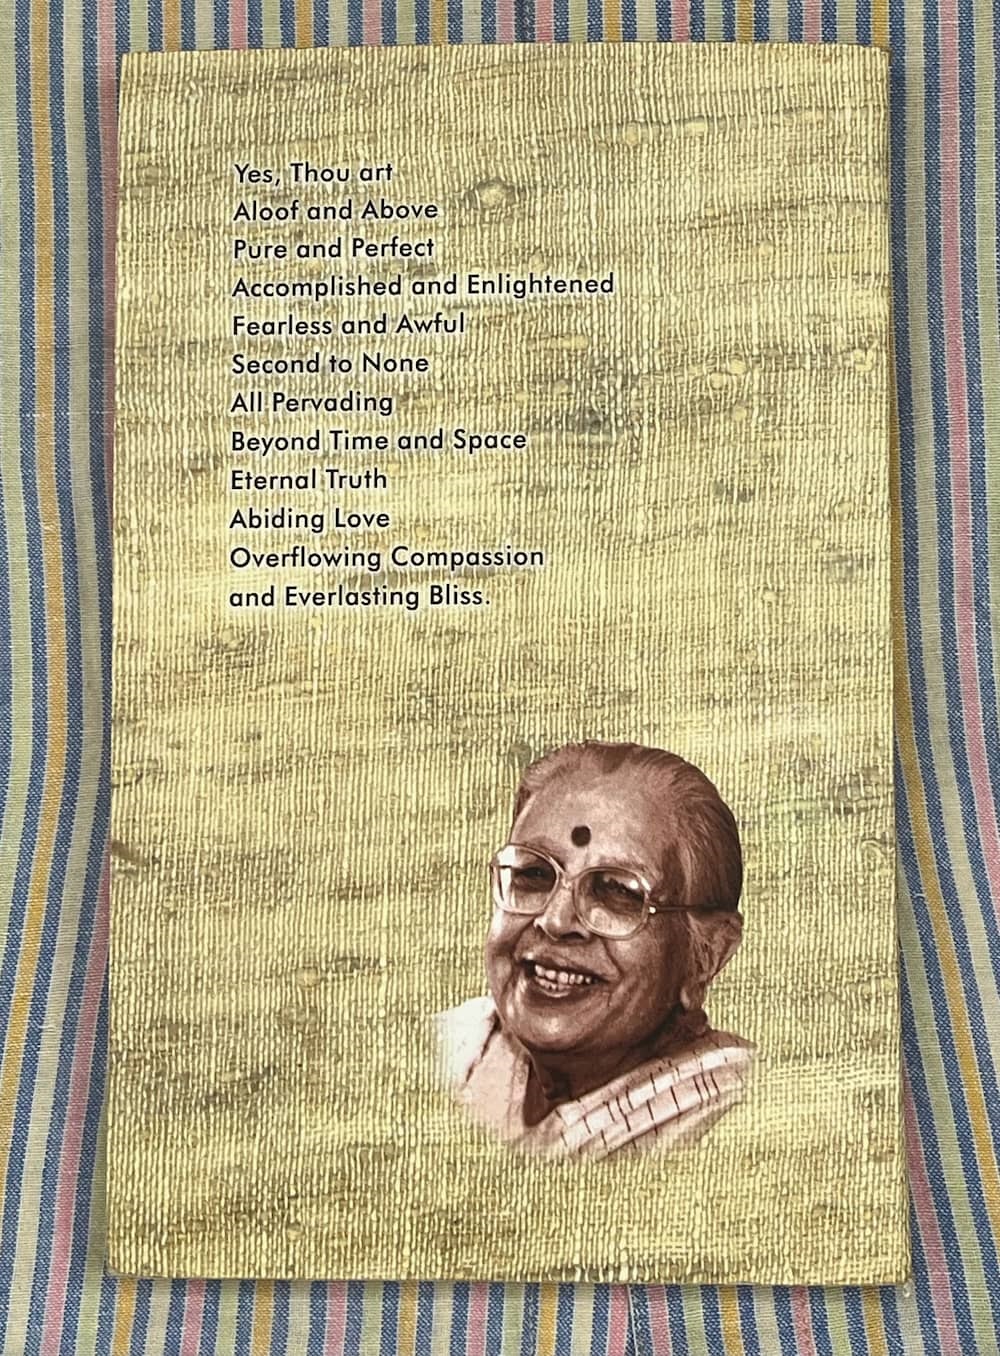 Yes, Thou art
Aloof and Above
Pure and Perfect
Accomplished and Enlightened
Fearless and Awful
Second to None
All Pervading
Beyond Time and Space
Eternal Truth
Abiding Love
Overflowing Compassion
and Everlasting Bliss.